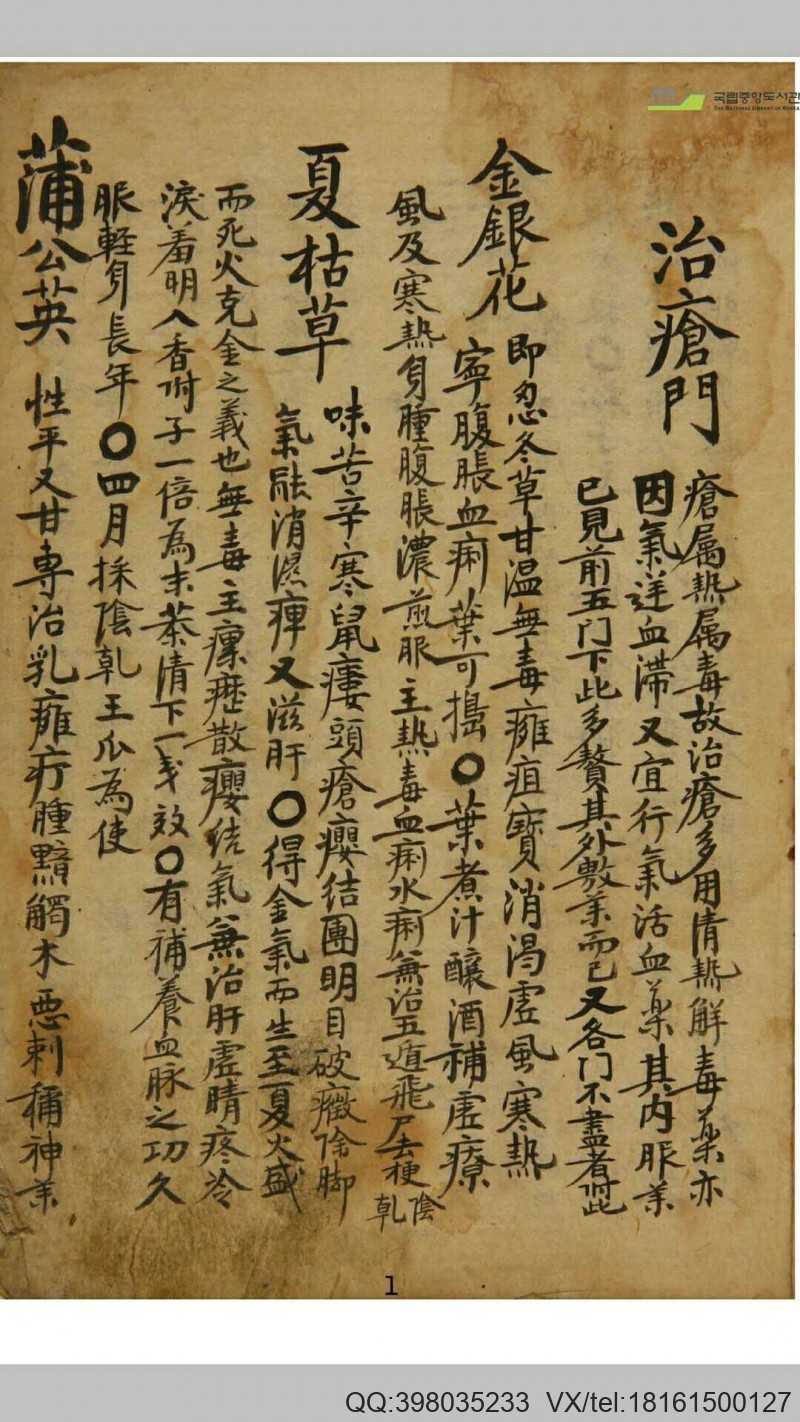 국립중앙도서관
THE NATIONAL LIBRARY OF KOREA
治瘡門
瘡属热属毒故治瘡多用清热解毒藥亦
因氣逆血滯又宜行氣活血藥其内服藥
已見前五门下此多贅其外敷藥而已又各门不盡者附此
金銀花
即忍冬草甘温無毒癰疽寶消渴虛風寒熱
寧腹脹血痢葉可搗〇葉煮汁釀酒補虛療
風及寒熱身腫腹脹濃煎服主熱毒血痢水痢兼治五遁飛尸去梗陰乹
夏枯草
味苦辛寒鼠瘻頭瘡癭结團明目破癥除脚
氣能消濕痺又滋肝〇得金氣而生至夏火盛
而死火克金之義也無毒主瘰癧散癭结氣兼治肝虛睛疼冷
淚羞明入香附子一倍為末茶清下一戋效〇有補養血脉之功久
服軽身長年〇四月採陰乹王瓜為使
蒲公英
性平又甘専治乳癰疔腫黯觸木恶刺稱神藥
1
QQ:398035233 VX/tel:18161500127